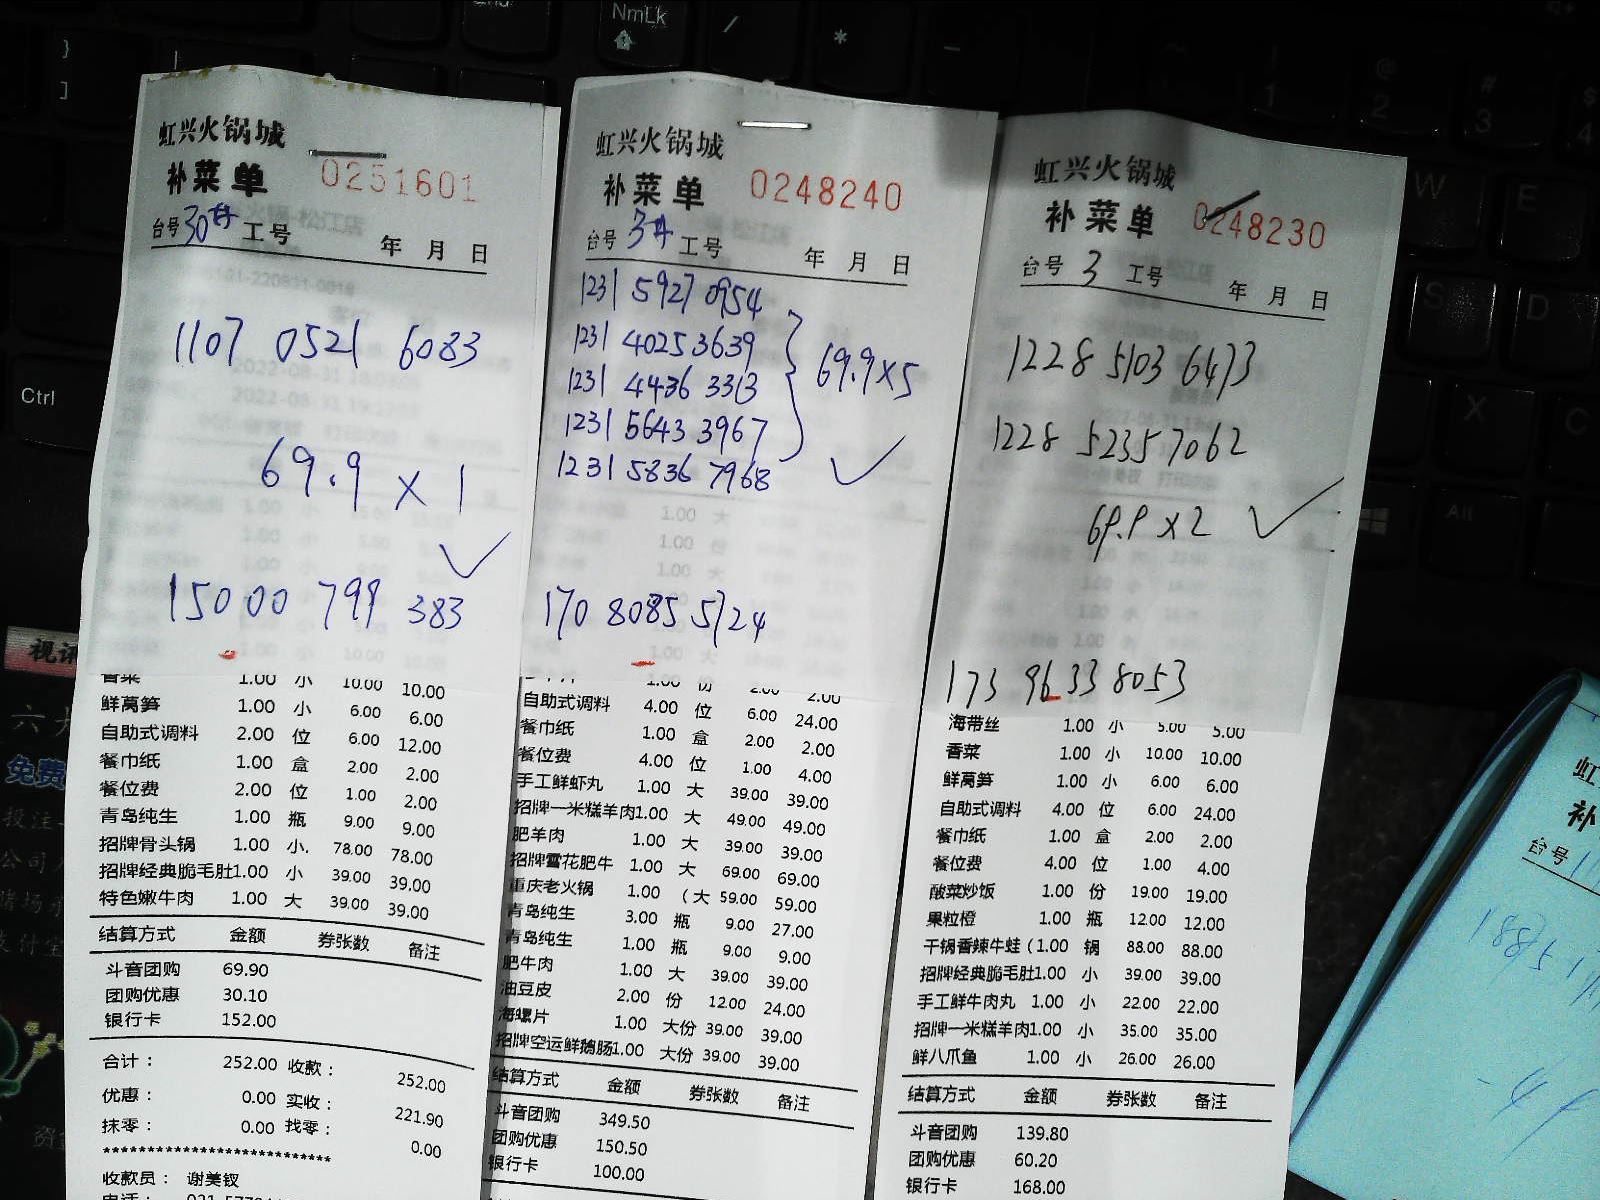 NmLk
Ctrl
虹兴火锅城
补菜单 0251601
台号 30# 工号 年 月 日
1107 0521 6083
69.9 x 1
15000 799 383
香菜 1.00 小 10.00 10.00
鲜莴笋 1.00 小 6.00 6.00
自助式调料 2.00 位 6.00 12.00
餐巾纸 1.00 盒 2.00 2.00
餐位费 2.00 位 1.00 2.00
青岛纯生 1.00 瓶 9.00 9.00
招牌骨头锅 1.00 小. 78.00 78.00
招牌经典脆毛肚1.00 小 39.00 39.00
特色嫩牛肉 1.00 大 39.00 39.00
结算方式 金额 券张数 备注
斗音团购 69.90
团购优惠 30.10
银行卡 152.00
合计： 252.00 收款： 252.00
优惠： 0.00 实收： 221.90
抹零： 0.00 找零： 0.00
***************************
收款员： 谢美钗
虹兴火锅城
补菜单 0248240
台号 3# 工号 年 月 日
1231 5927 0954
1231 4025 3639
1231 4436 3313
1231 5643 3967
1231 5836 7968
69.9 x 5
170 8085 5724
1.00 份 2.00 2.00
自助式调料 4.00 位 6.00 24.00
餐巾纸 1.00 盒 2.00 2.00
餐位费 4.00 位 1.00 4.00
手工鲜虾丸 1.00 大 39.00 39.00
招牌一米糕羊肉1.00 大 49.00 49.00
肥羊肉 1.00 大 39.00 39.00
招牌雪花肥牛 1.00 大 69.00 69.00
重庆老火锅 1.00 （大 59.00 59.00
青岛纯生 3.00 瓶 9.00 27.00
青岛纯生 1.00 瓶 9.00 9.00
肥牛肉 1.00 大 39.00 39.00
油豆皮 2.00 份 12.00 24.00
海螺片 1.00 大份 39.00 39.00
招牌空运鲜鹅肠1.00 大份 39.00 39.00
结算方式 金额 券张数 备注
斗音团购 349.50
团购优惠 150.50
银行卡 100.00
虹兴火锅城
补菜单 0248230
台号 3 工号 年 月 日
1228 5103 6473
1228 5235 7062
69.9 x 2
173 9633 8053
海带丝 1.00 小 5.00 5.00
香菜 1.00 小 10.00 10.00
鲜莴笋 1.00 小 6.00 6.00
自助式调料 4.00 位 6.00 24.00
餐巾纸 1.00 盒 2.00 2.00
餐位费 4.00 位 1.00 4.00
酸菜炒饭 1.00 份 19.00 19.00
果粒橙 1.00 瓶 12.00 12.00
干锅香辣牛蛙（1.00 锅 88.00 88.00
招牌经典脆毛肚1.00 小 39.00 39.00
手工鲜牛肉丸 1.00 小 22.00 22.00
招牌一米糕羊肉1.00 小 35.00 35.00
鲜八爪鱼 1.00 小 26.00 26.00
结算方式 金额 券张数 备注
斗音团购 139.80
团购优惠 60.20
银行卡 168.00
虹
补
台号